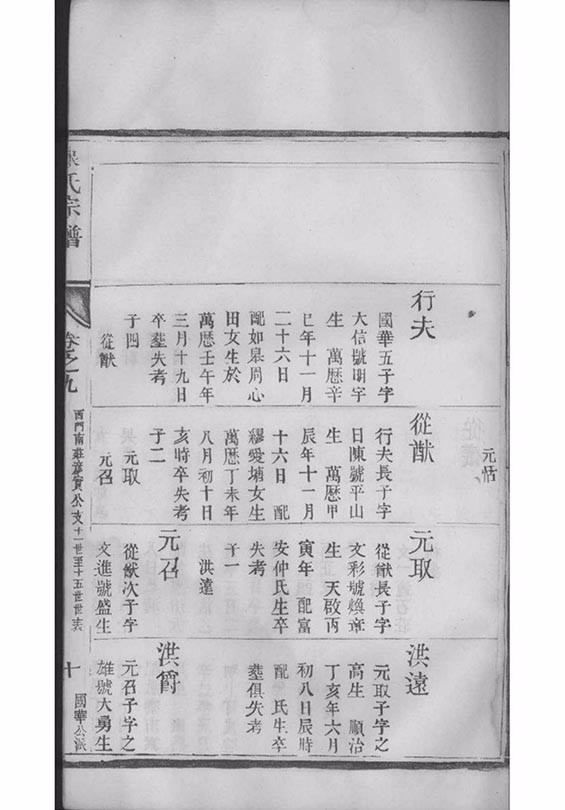 元恬
行夫
國華五子字
大信號明宇
生 萬曆辛
巳年十一月
二十六日
配如皋周心
田女生於
萬曆壬午年
三月十九日
卒塟失考
子四
從猷
從猷
行夫長子字
日陳號平山
生 萬曆甲
辰年十一月
十六日 配
繆愛塘女生
萬曆丁未年
八月初十日
亥時卒失考
子二
元取
元召
元取
從猷長子字
文彩號煥章
生 天啟丙
寅年 配富
安仲氏生卒
失考
子一
洪遠
元召
從猷次子字
文進號盛生
洪遠
元取子字之
高生 順治
丁亥年六月
初八日辰時
配 氏生卒
塟俱失考
洪爵
元召子字之
雄號大勇生
氏宗譜
卷之九
西門南莊
公支十一世至十五世世表
十
國華公派